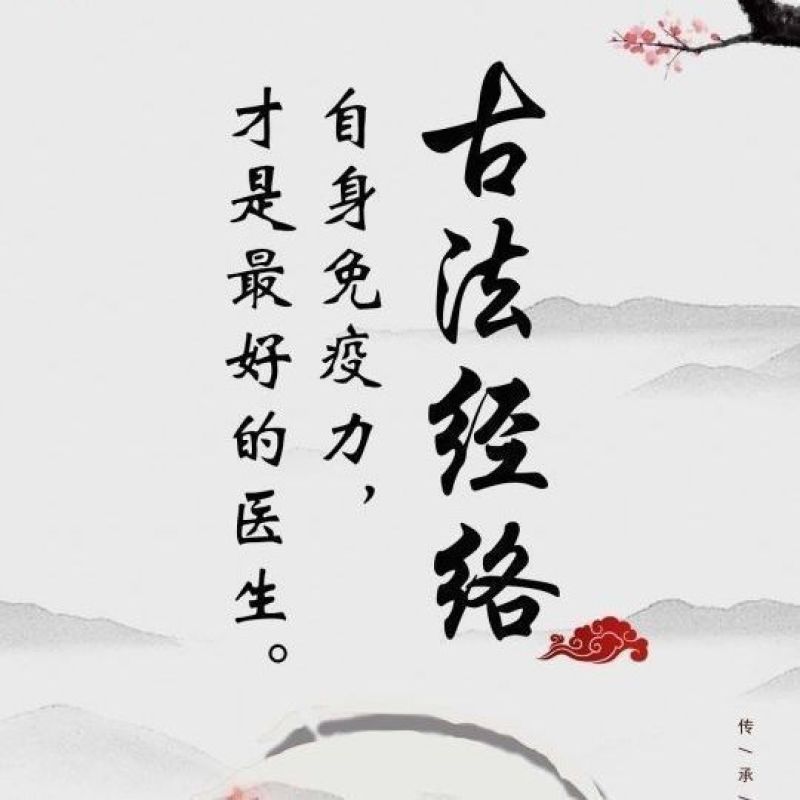 古法经络
自身免疫力，
才是最好的医生。
传/承/